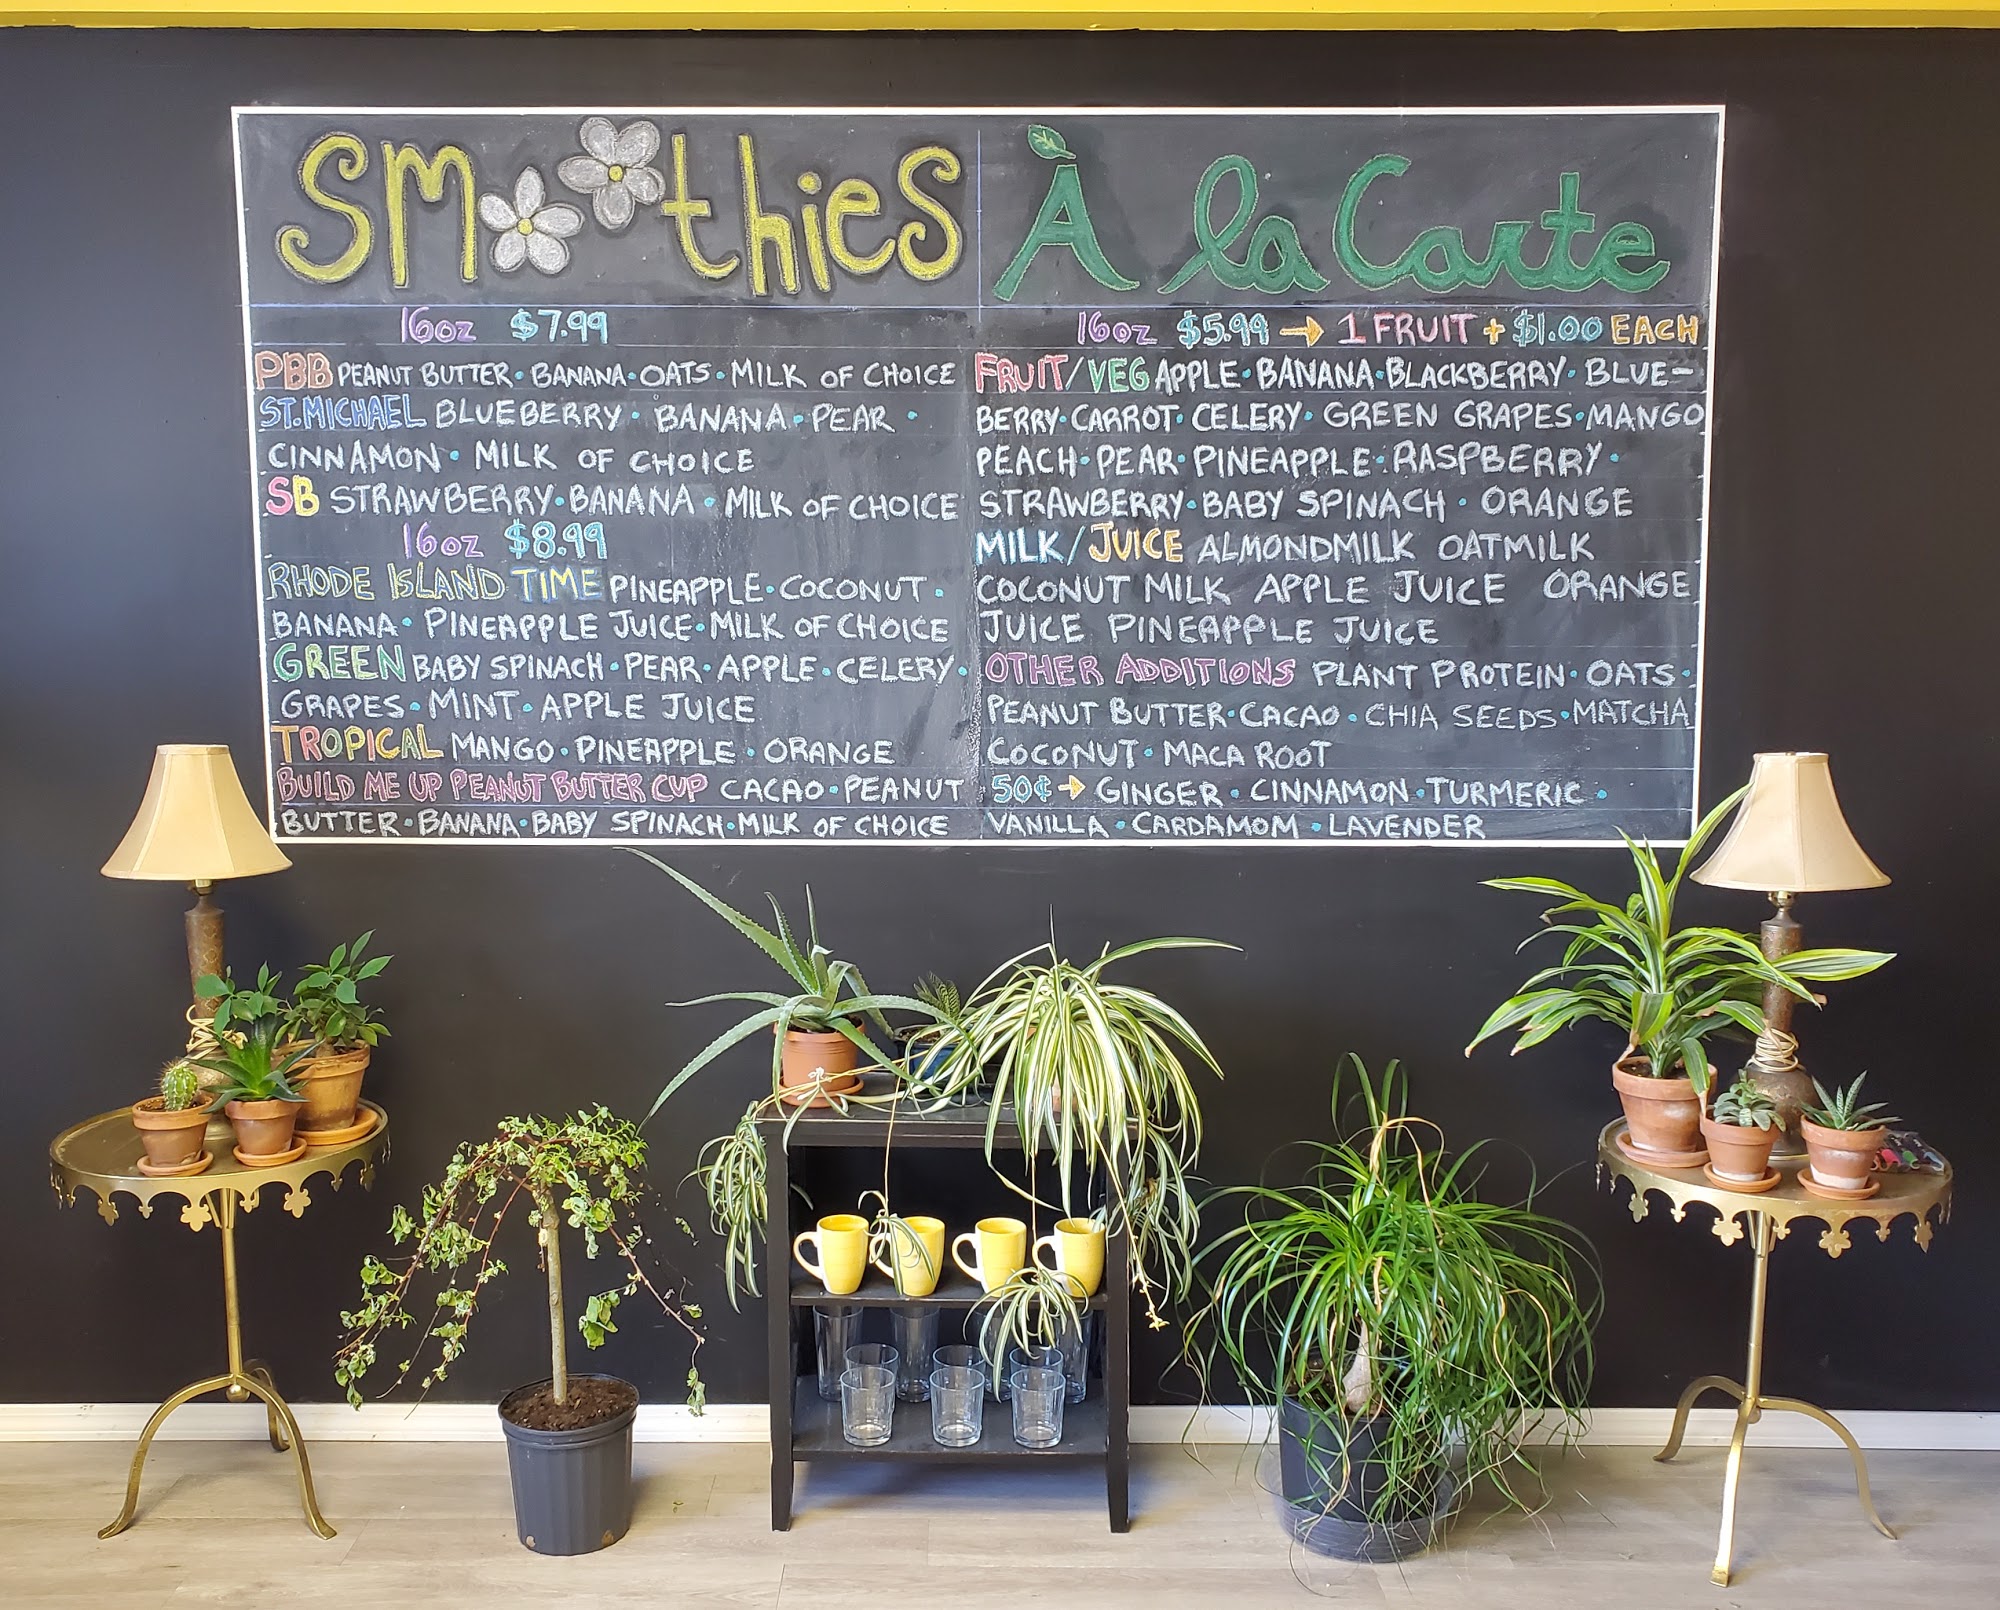 Smoothies
16oz $7.99
PBB PEANUT BUTTER • BANANA • OATS • MILK OF CHOICE
ST. MICHAEL BLUEBERRY • BANANA • PEAR •
CINNAMON • MILK OF CHOICE
SB STRAWBERRY • BANANA • MILK OF CHOICE
16oz $8.99
RHODE ISLAND TIME PINEAPPLE • COCONUT •
BANANA • PINEAPPLE JUICE • MILK OF CHOICE
GREEN BABY SPINACH • PEAR • APPLE • CELERY •
GRAPES • MINT • APPLE JUICE
TROPICAL MANGO • PINEAPPLE • ORANGE
BUILD ME UP PEANUT BUTTER CUP CACAO • PEANUT
BUTTER • BANANA • BABY SPINACH • MILK OF CHOICE
À la Carte
16oz $5.99 → 1 FRUIT + $1.00 EACH
FRUIT/VEG APPLE • BANANA • BLACKBERRY • BLUE-
BERRY • CARROT • CELERY • GREEN GRAPES • MANGO
PEACH • PEAR • PINEAPPLE • RASPBERRY •
STRAWBERRY • BABY SPINACH • ORANGE
MILK/JUICE ALMONDMILK OATMILK
COCONUT MILK APPLE JUICE ORANGE
JUICE PINEAPPLE JUICE
OTHER ADDITIONS PLANT PROTEIN • OATS •
PEANUT BUTTER • CACAO • CHIA SEEDS • MATCHA
COCONUT • MACA ROOT
50¢ → GINGER • CINNAMON • TURMERIC •
VANILLA • CARDAMOM • LAVENDER